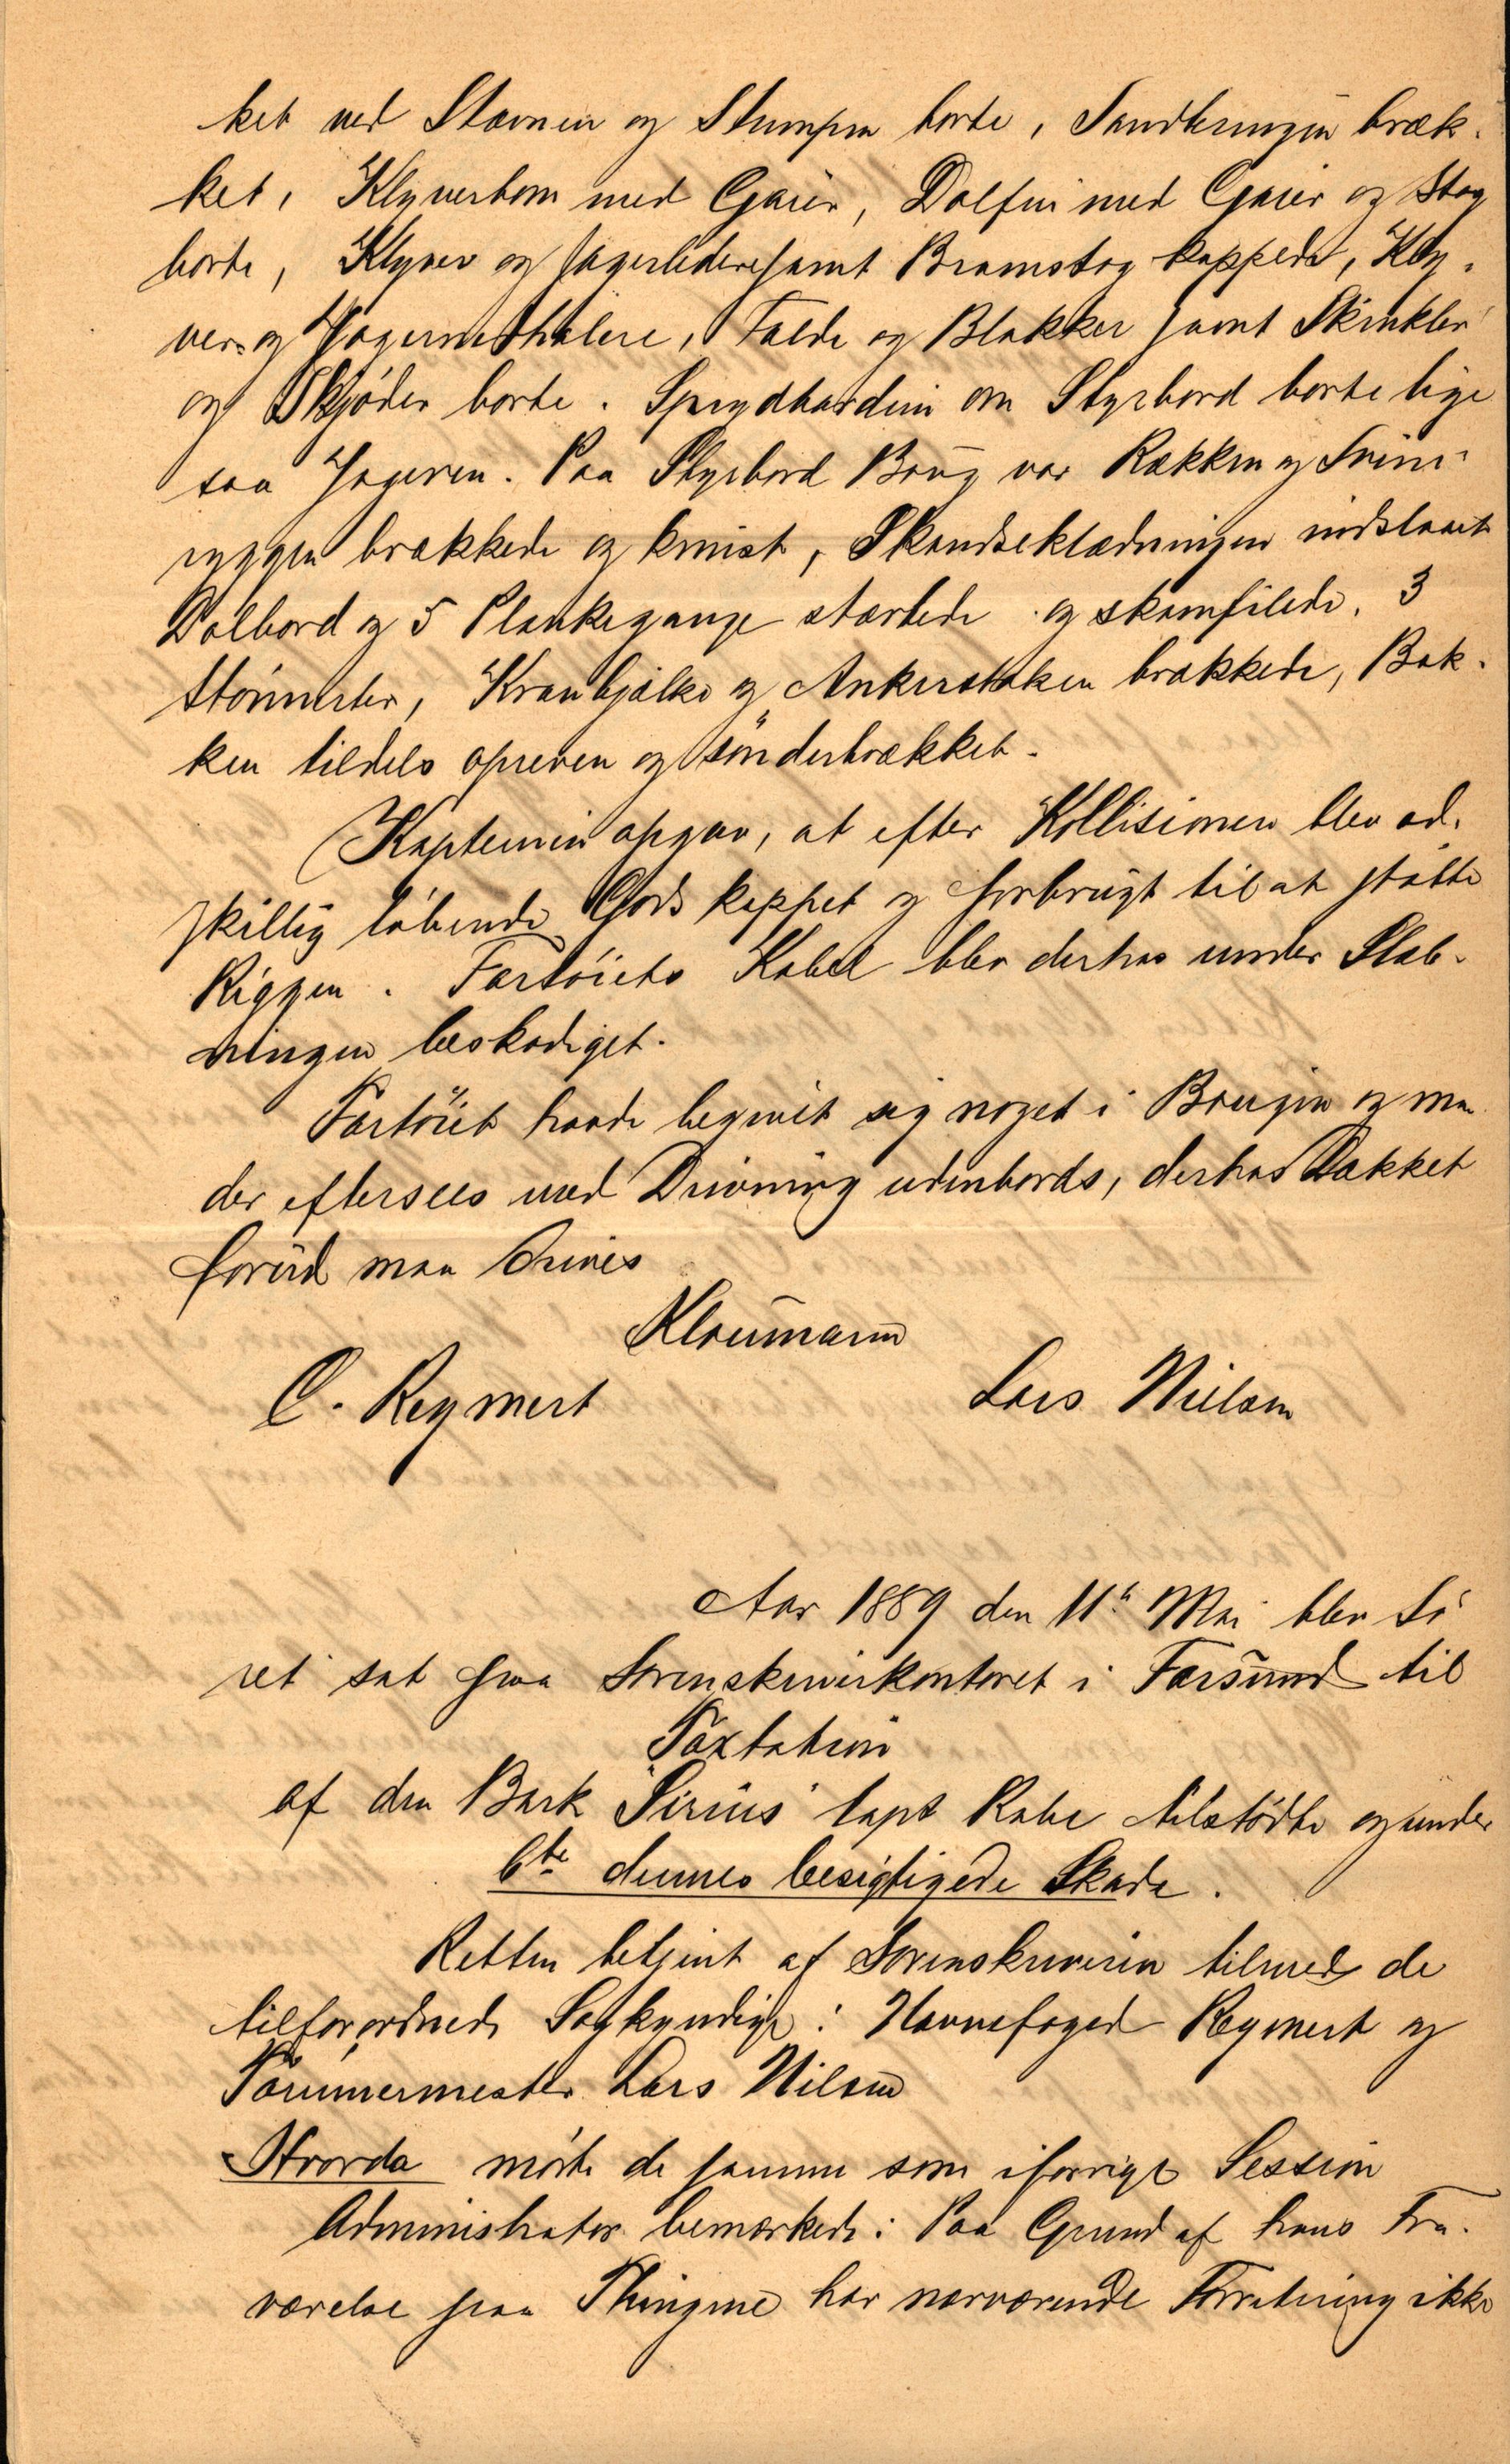 ket ved Stævnen og Stumpen borte, Sandtringen bræk-
ket, Klyverbom med Gaier, Dolfin med Gaier og Stag
borte, Klyver og Jagerledere samt Bramstag kappede, Kly-
ver- og Jagernedhalere, Falde og Blokker samt Skinkler
og Skjøder borte. Sprydbardun om Styrbord borte lige
saa Jageren. Paa Styrbord Boug var Rækken og Svine-
ryggen brækkede og knust, Skandseklædningen indslaaet
Dolbord og 5 Plankegange stærtede og skamfilede. 3
Stønnerter, Kranbjælke og Ankerstokken brækkede, Bak-
ken tildels opreven og sönderbrækket.
Kapteinen opgav, at efter Kollisionen blev ad-
skillig løbende Gods kappet og forbrugt til at støtte
Riggen. Fartöiets Kabel blev derhos under Slæb-
ningen beskadiget.
Fartöiet havde begivet sig noget i Bougen og maa
der eftersees med Drivning udenbords, derhos Dækket
forud maa drives
Kloumann
C. Reymert Lars Nielsen
Aar 1889 den 11te Mai blev Sö
ret sat paa Sorenskriverkontoret i Farsund til
Taxtation
af den Bark "Sirius" Capt Rabe tilstödte og under
6te dennes besigtigede Skade.
Retten betjent af Sorenskriveren tilmed de
tilforordnede Sagkyndige: Havnefoged Reymert og
Tømmermester Lars Nilsen
Hvorda mödte de samme som i forrige Session
Administrator bemærkede: Paa Grund af hans Fra-
værelse paa Thingene har nærværende Forretning ikke